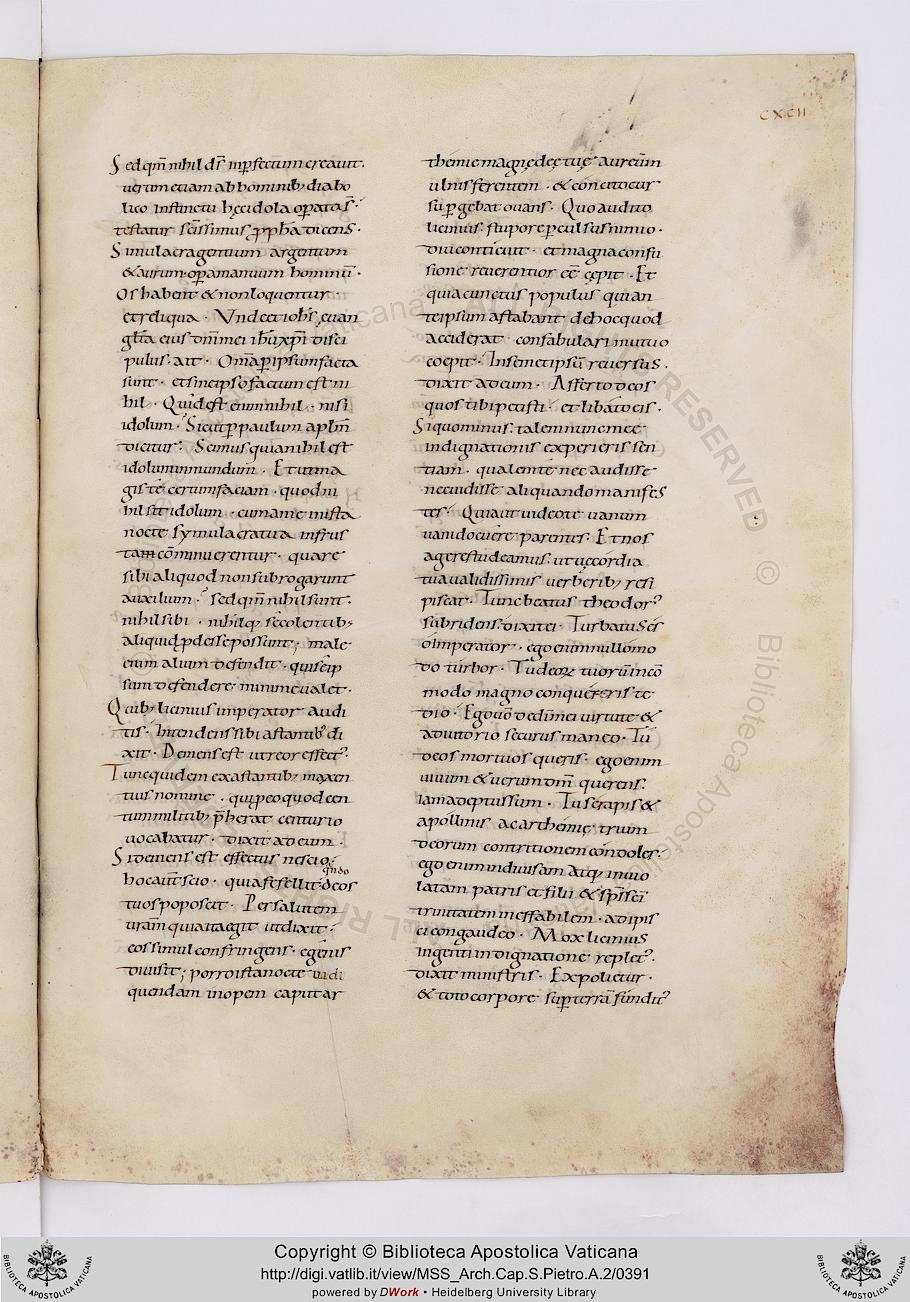 CXCII
Sed qm̄ nihil dr̄ inꝑfectum creauit.
uerum etiam ab hominib; diabo
lico instinctu hęc idola oꝑata s̄·
testatur sc̄issimus ꝓpha dicens·
Simulacra gentium argentum
& aurum· oꝑa manuum hominū·
Os habent & non loquentur·
et reliqua· Unde et iohs̄ euan
glta eius dn̄i mei ih̄u xp̄i disci
pulus· ait· Om̄a ꝑ ipsum facta
sunt· et sine ipso factum est ni
hil· Quid est enim nihil· nisi
idolum· Sicut ꝑ paulum aplm̄
dicitur· Scimus quia nihil est
idolum in mundum· Et ut ma
gis te certum faciam· quod ni
hil sit idolum· cum a me in ista
nocte symulacra tua infrus
tam cōminuerentur· quare
sibi aliquod non subrogarunt
auxilium· sed qm̄ nihil sunt·
nihil sibi· nihilq; se colentib;
aliquid ꝓdesse possunt; male
enim alium defendit· qui seip
sum defendere minime ualet·
Quib; licinius imperator audi
tis· Intendens sibi astantib; di
xit· Demens est ut reor effect᾽·
Tunc quidem ex astantib; maxen
tius nomine· qui p eo quod cen
tum militib; p̄herat centurio
uocabatur· dixit ad eum·
Si demens est effectus nescio·
qn̄do
hoc aūt scio· quia fefellit deos
tuos poposcit· Per salutem
uram̄ quia ita egit ut dixit·
eos simul confringens· egenis
diuisit; porro ista nocte uidi
quendam inopem caput ar
themię magnę deę tuę aureūm
ulnis ferentem· & concito cur
su ꝑgebat ouans· Quo audito
licinius· stupore ꝑculsus nimio·
diu conticuit· et magna confu
sione reuerentior ee͞ cępit· Et
quia cunctus populus qui an
te ipsum astabant de hoc quod
acciderat confabulari mutuo
coepit· In semetipsū reuersus·
dixit ad eum· Afferto deos
quos tibi petisti· et libato eis·
Si quominus· talem nunc mee
indignationis experieris sen
tiam· qualem te nec audisse
nec uidisse aliquando manifes
tes· Quia ut uideo te uanum
uani docuere parentes· Et nos
agere studeamus· ut uęcordia
tua ualidissimis uerberib; resi
piscat· Tunc beatus theodor᾽
subridens· dixit ei· Turbatus es
o imperator· ego enim nullo mo
do turbor· Tu deorꝝ tuorū inco͞
modo magno conquereris te
dio· Ego uō dei dn̄i mei uirtute &
adiutorio securus maneo· Tu
deos mortuos queris· ego enim
uiuum & uerum dm̄ querens·
iam adeptus sum· Tu serapis &
apollinis ac arthemię trium
deorum contritionem condoles·
ego enim indiuisam atq; inuio
latam patris et filii & sp̄s sc̄i
trinitatem ineffabilem· adipis
ci congaudeo· Mox licinius
ingenti indignatione replet᾽·
dixit ministris· Expolietur·
& toto corpore suꝑ terrā fundit᾽
Copyright © Biblioteca Apostolica Vaticana
http://digi.vatlib.it/view/MSS_Arch.Cap.S.Pietro.A.2/0391
powered by DWork • Heidelberg University Library